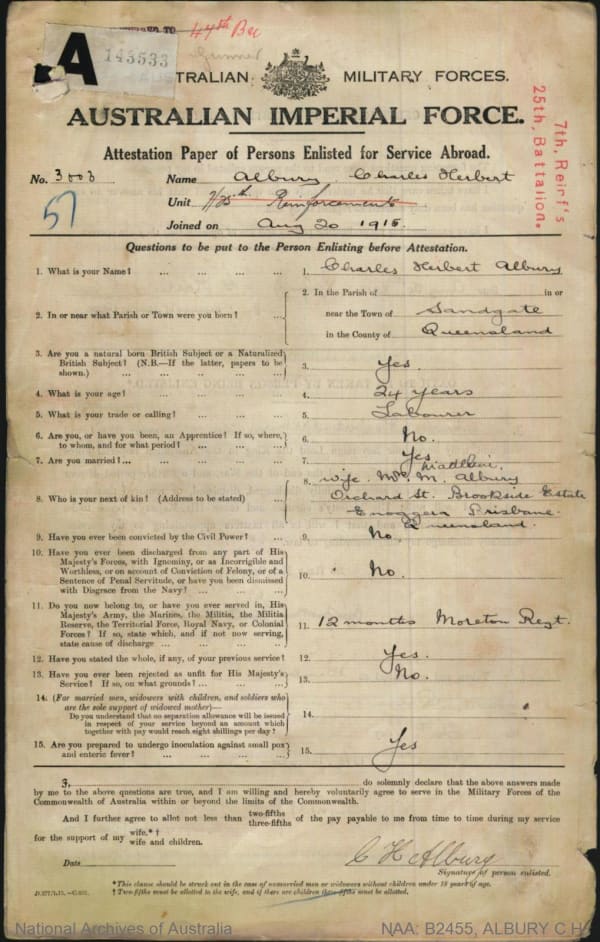 44th Bn
A
143533
AUSTRALIAN MILITARY FORCES.
AUSTRALIAN IMPERIAL FORCE.
Attestation Paper of Persons Enlisted for Service Abroad.
7th, Reinf's
25th, Battalion.
No. 3003 Name Albury Charles Herbert
57
Unit 7/25th Reinforcements
Joined on Aug 20 1915
Questions to be put to the Person Enlisting before Attestation.
1. What is your Name? ... ... ... ... 1. Charles Herbert Albury
2. In or near what Parish or Town were you born? ... 2. In the Parish of in or
near the Town of Sandgate
in the County of Queensland
3. Are you a natural born British Subject or a Naturalized
British Subject? (N.B.—If the latter, papers to be
shown.) ... ... ... ... 3. Yes.
4. What is your age? ... ... ... ... 4. 24 years
5. What is your trade or calling? ... ... ... 5. Labourer
6. Are you, or have you been, an Apprentice? If so, where,
to whom, and for what period? ... ... ... 6. No.
7. Are you married? ... ... ... ... 7. Yes
8. Who is your next of kin? (Address to be stated) ... 8. wife Mrs M. Albury
Orchard St. Brookside Estate
Enoggera Prisbane.
Queensland.
9. Have you ever been convicted by the Civil Power? ... 9. No.
10. Have you ever been discharged from any part of His
Majesty's Forces, with Ignominy, or as Incorrigible and
Worthless, or on account of Conviction of Felony, or of a
Sentence of Penal Servitude, or have you been dismissed
with Disgrace from the Navy? ... ... ... 10. No.
11. Do you now belong to, or have you ever served in, His
Majesty's Army, the Marines, the Militia, the Militia
Reserve, the Territorial Force, Royal Navy, or Colonial
Forces? If so, state which, and if not now serving,
state cause of discharge ... ... ... 11. 12 months Moreton Regt.
12. Have you stated the whole, if any, of your previous service? 12. Yes.
13. Have you ever been rejected as unfit for His Majesty's
Service? If so, on what grounds? ... ... ... 13. No.
14. (For married men, widowers with children, and soldiers who
are the sole support of widowed mother)—
Do you understand that no separation allowance will be issued
in respect of your service beyond an amount which
together with pay would reach eight shillings per day? ... 14.
15. Are you prepared to undergo inoculation against small pox
and enteric fever? ... ... ... ... 15. Yes
I, do solemnly declare that the above answers made
by me to the above questions are true, and I am willing and hereby voluntarily agree to serve in the Military Forces of the
Commonwealth of Australia within or beyond the limits of the Commonwealth.
And I further agree to allot not less than two-fifths three-fifths of the pay payable to me from time to time during my service
for the support of my wife.*† wife and children.
Date C H Albury
Signature of person enlisted.
*This clause should be struck out in the case of unmarried men or widowers without children under 18 years of age.
†Two-fifths must be allotted to the wife, and if there are children three-fifths must be allotted.
National Archives of Australia NAA: B2455, ALBURY C H